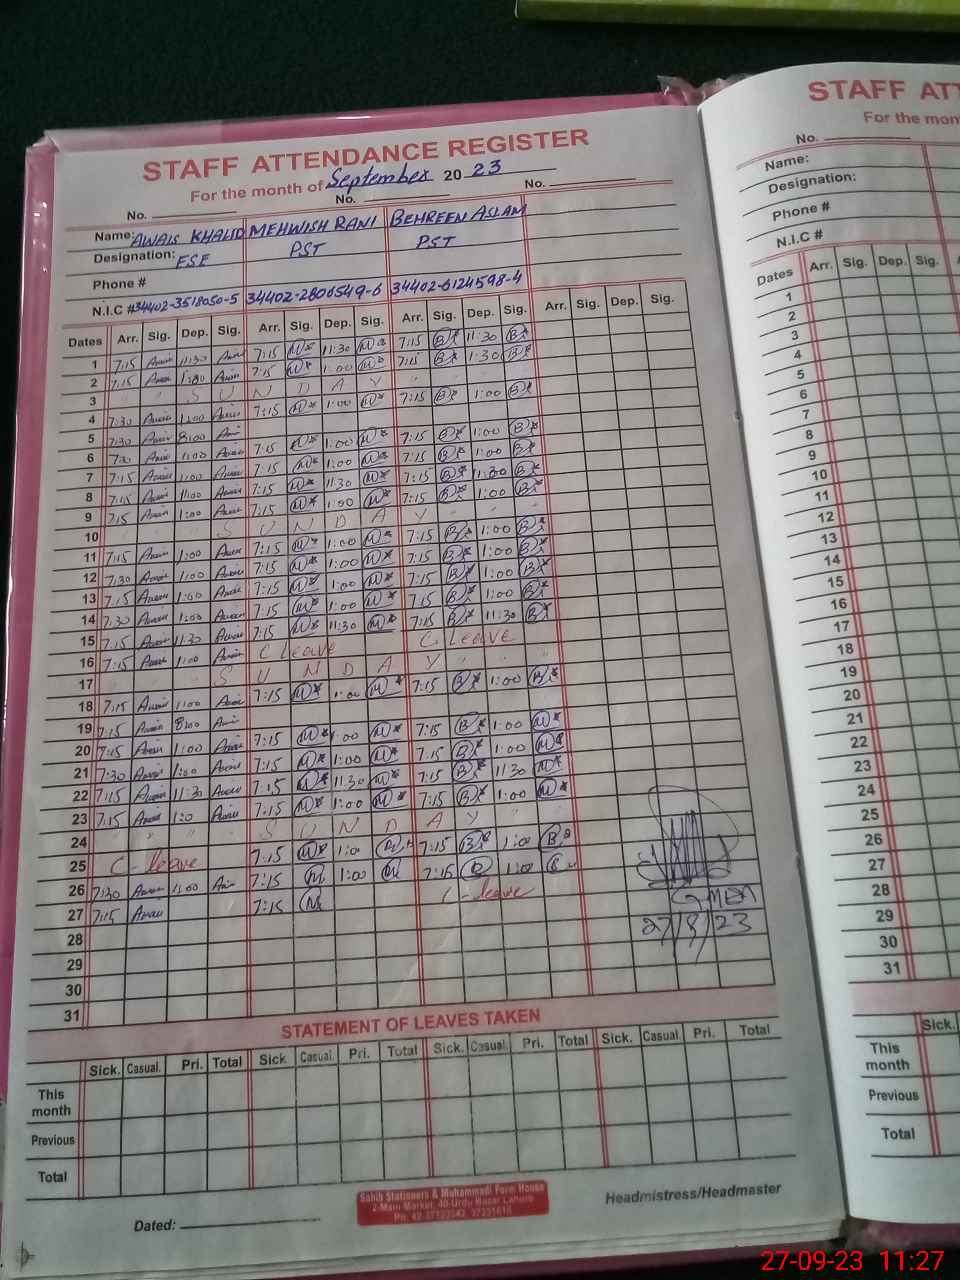 STAFF ATTENDANCE REGISTER
For the month of September 20 23
No. No. No.
Name: AWAIS KHALID MEHWISH RANI BEHREEN ASLAM
Designation: ESE PST PST
Phone #
N.I.C # 34402-3518050-5 34402-2806549-6 34402-6124598-4
Dates Arr. Sig. Dep. Sig. Arr. Sig. Dep. Sig. Arr. Sig. Dep. Sig. Arr. Sig. Dep. Sig.
1 7:15 11:30 7:15 11:30 7:15 11:30
2 7:15 1:00 7:15 1:00 7:15 1:30
3 S U N D A Y
4 7:30 1:00 7:15 1:00 7:15 1:00
5 7:30 8:00
6 7:30 1:00 7:15 1:00 7:15 1:00
7 7:15 1:00 7:15 1:00 7:15 1:00
8 7:15 11:00 7:15 11:30 7:15 11:30
9 7:15 1:00 7:15 1:00 7:15 1:00
10 S U N D A Y
11 7:15 1:00 7:15 1:00 7:15 1:00
12 7:30 1:00 7:15 1:00 7:15 1:00
13 7:15 1:00 7:15 1:00 7:15 1:00
14 7:30 1:00 7:15 1:00 7:15 1:00
15 7:15 11:30 7:15 11:30 7:15 11:30
16 7:15 1:00 C Leave C Leave
17 S U N D A Y
18 7:15 1:00 7:15 1:00 7:15 1:00
19 7:15 8:00
20 7:15 1:00 7:15 1:00 7:15 1:00
21 7:30 1:00 7:15 1:00 7:15 1:00
22 7:15 11:30 7:15 11:30 7:15 11:30
23 7:15 1:0 7:15 1:00 7:15 1:00
24 S U N D A Y
25 C-leave 7:15 1:00 7:15 1:00
26 7:30 1:00 7:15 1:00 7:15 1:00
27 7:15 7:15 C-leave
28
29
30
31
27/9/23
STATEMENT OF LEAVES TAKEN
Sick. Casual. Pri. Total Sick. Casual. Pri. Total Sick. Casual. Pri. Total Sick. Casual. Pri. Total
This month
Previous
Total
Dated:
Sahib Stationers & Muhammadi Form House
2-Main Market, 40-Urdu Bazar Lahore
Headmistress/Headmaster
STAFF ATT
For the mon
No.
Name:
Designation:
Phone #
N.I.C #
Dates Arr. Sig. Dep. Sig.
1
2
3
4
5
6
7
8
9
10
11
12
13
14
15
16
17
18
19
20
21
22
23
24
25
26
27
28
29
30
31
Sick.
This month
Previous
Total
27-09-23 11:27